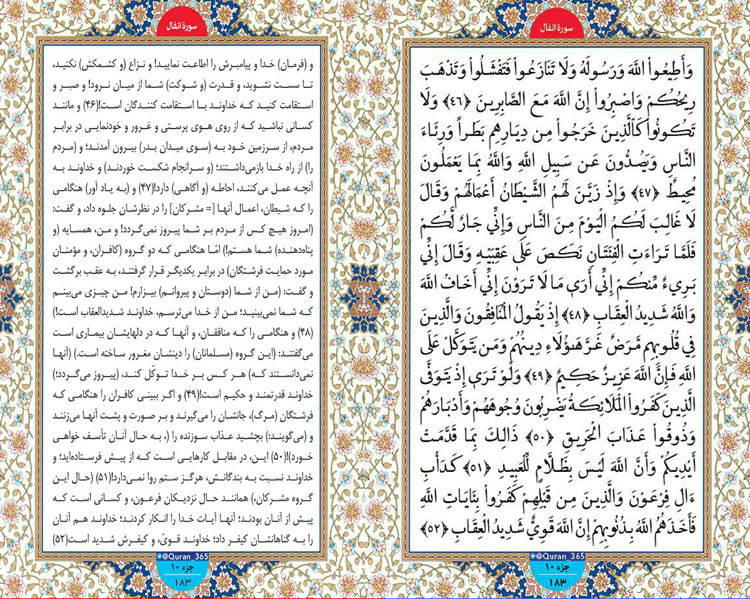 سورة انفال
وَأَطِيعُواْ اللَّهَ وَرَسُولَهُ وَلَا تَنَازَعُواْ فَتَفْشَلُواْ وَتَذْهَبَ
رِيحُكُمْ وَاصْبِرُواْ إِنَّ اللَّهَ مَعَ الصَّابِرِينَ ﴿۴۶﴾ وَلَا
تَكُونُواْ كَالَّذِينَ خَرَجُواْ مِن دِيَارِهِم بَطَراً وَرِئَاءَ
النَّاسِ وَيَصُدُّونَ عَن سَبِيلِ اللَّهِ وَاللَّهُ بِمَا يَعْمَلُونَ
مُحِيطٌ ﴿۴۷﴾ وَإِذْ زَيَّنَ لَهُمُ الشَّيْطَانُ أَعْمَالَهُمْ وَقَالَ
لَا غَالِبَ لَكُمُ الْيَوْمَ مِنَ النَّاسِ وَإِنِّي جَارٌ لَّكُمْ
فَلَمَّا تَرَاءَتِ الْفِئَتَانِ نَكَصَ عَلَى عَقِبَيْهِ وَقَالَ إِنِّي
بَرِيءٌ مِّنكُمْ إِنِّي أَرَى مَا لَا تَرَوْنَ إِنِّي أَخَافُ اللَّهَ
وَاللَّهُ شَدِيدُ الْعِقَابِ ﴿۴۸﴾ إِذْ يَقُولُ الْمُنَافِقُونَ وَالَّذِينَ
فِي قُلُوبِهِم مَّرَضٌ غَرَّ هَـؤُلَاءِ دِينُهُمْ وَمَن يَتَوَكَّلْ عَلَى
اللَّهِ فَإِنَّ اللَّهَ عَزِيزٌ حَكِيمٌ ﴿۴۹﴾ وَلَوْ تَرَى إِذْ يَتَوَفَّى
الَّذِينَ كَفَرُواْ الْمَلَائِكَةُ يَضْرِبُونَ وُجُوهَهُمْ وَأَدْبَارَهُمْ
وَذُوقُواْ عَذَابَ الْحَرِيقِ ﴿۵۰﴾ ذَالِكَ بِمَا قَدَّمَتْ
أَيْدِيكُمْ وَأَنَّ اللَّهَ لَيْسَ بِظَلَّامٍ لِّلْعَبِيدِ ﴿۵۱﴾ كَدَأْبِ
ءَالِ فِرْعَوْنَ وَالَّذِينَ مِن قَبْلِهِمْ كَفَرُواْ بِئَايَاتِ اللَّهِ
فَأَخَذَهُمُ اللَّهُ بِذُنُوبِهِمْ إِنَّ اللَّهَ قَوِيٌّ شَدِيدُ الْعِقَابِ ﴿۵۲﴾
@Quran_365
جزء ۱۰
۱۸۳
سورة انفال
و (فرمان) خدا و پیامبرش را اطاعت نمایید! و نزاع (و کشمکش) نکنید،
تا سست نشوید، و قدرت (و شوکت) شما از میان نرود! و صبر و
استقامت کنید که خداوند با استقامت کنندگان است!(۴۶) و مانند
کسانی نباشید که از روی هوی پرستی و غرور و خودنمایی در برابر
مردم، از سرزمین خود به (سوی میدان بدر) بیرون آمدند؛ و (مردم
را) از راه خدا بازمی‌داشتند؛ (و سرانجام شکست خوردند) و خداوند به
آنچه عمل می‌کنند، احاطه (و آگاهی) دارد!(۴۷) و (به یاد آور) هنگامی
را که شیطان، اعمال آنها [= مشرکان] را در نظرشان جلوه داد، و گفت:
(امروز هیچ کس از مردم بر شما پیروز نمی‌گردد! و من، همسایه (و
پناه‌دهنده) شما هستم!) امّا هنگامی که دو گروه (کافران، و مؤمنان
مورد حمایت فرشتگان) در برابر یکدیگر قرار گرفتند، به عقب برگشت
و گفت: (من از شما (دوستان و پیروانم) بیزارم! من چیزی می‌بینم
که شما نمی‌بینید؛ من از خدا می‌ترسم، خداوند شدیدالعقاب است!)
(۴۸) و هنگامی را که منافقان، و آنها که در دلهایشان بیماری است
می‌گفتند: (این گروه (مسلمانان) را دینشان مغرور ساخته است.) (آنها
نمی‌دانستند که) هر کس بر خدا توکّل کند، (پیروز می‌گردد؛)
خداوند قدرتمند و حکیم است!(۴۹) و اگر ببینی کافران را هنگامی که
فرشتگان (مرگ)، جانشان را می‌گیرند و بر صورت و پشت آنها می‌زنند
و (می‌گویند:) بچشید عذاب سوزنده را (، به حال آنان تأسف خواهی
خورد)!(۵۰) این، در مقابل کارهایی است که از پیش فرستاده‌اید؛ و
خداوند نسبت به بندگانش، هرگز ستم روا نمی‌دارد!(۵۱) (حال این
گروه مشرکان،) همانند حال نزدیکان فرعون، و کسانی است که
پیش از آنان بودند؛ آنها آیات خدا را انکار کردند؛ خداوند هم آنان
را به گناهانشان کیفر داد؛ خداوند قویّ، و کیفرش شدید است(۵۲)
@Quran_365
جزء ۱۰
۱۸۳